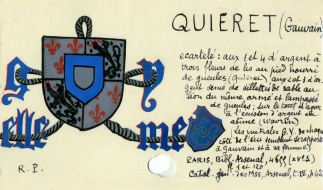 QUIERET (Gauvain)
ecartelé : aux 1 et 4 d'argent à
trois fleurs de lis au pied nourri
de gueules (Quieret) aux 2 et 3 d'ar
gent semé de billettes de sable au
lion du même armé et lampassé
de gueules ; sur le tout d'azur
à l'écusson d'argent
(Wavrin)
Les initiales G.Y. de chaque
coté de l'écu semblent se rapporter
à Gauvain et à sa femme
PARIS, Bibl. Arsenal, 4655 (XVe s.)
ff. 1 et 120
Catal. gén. des Mss, Arsenal, t. IV, p.
G Y
elle me
R. P.